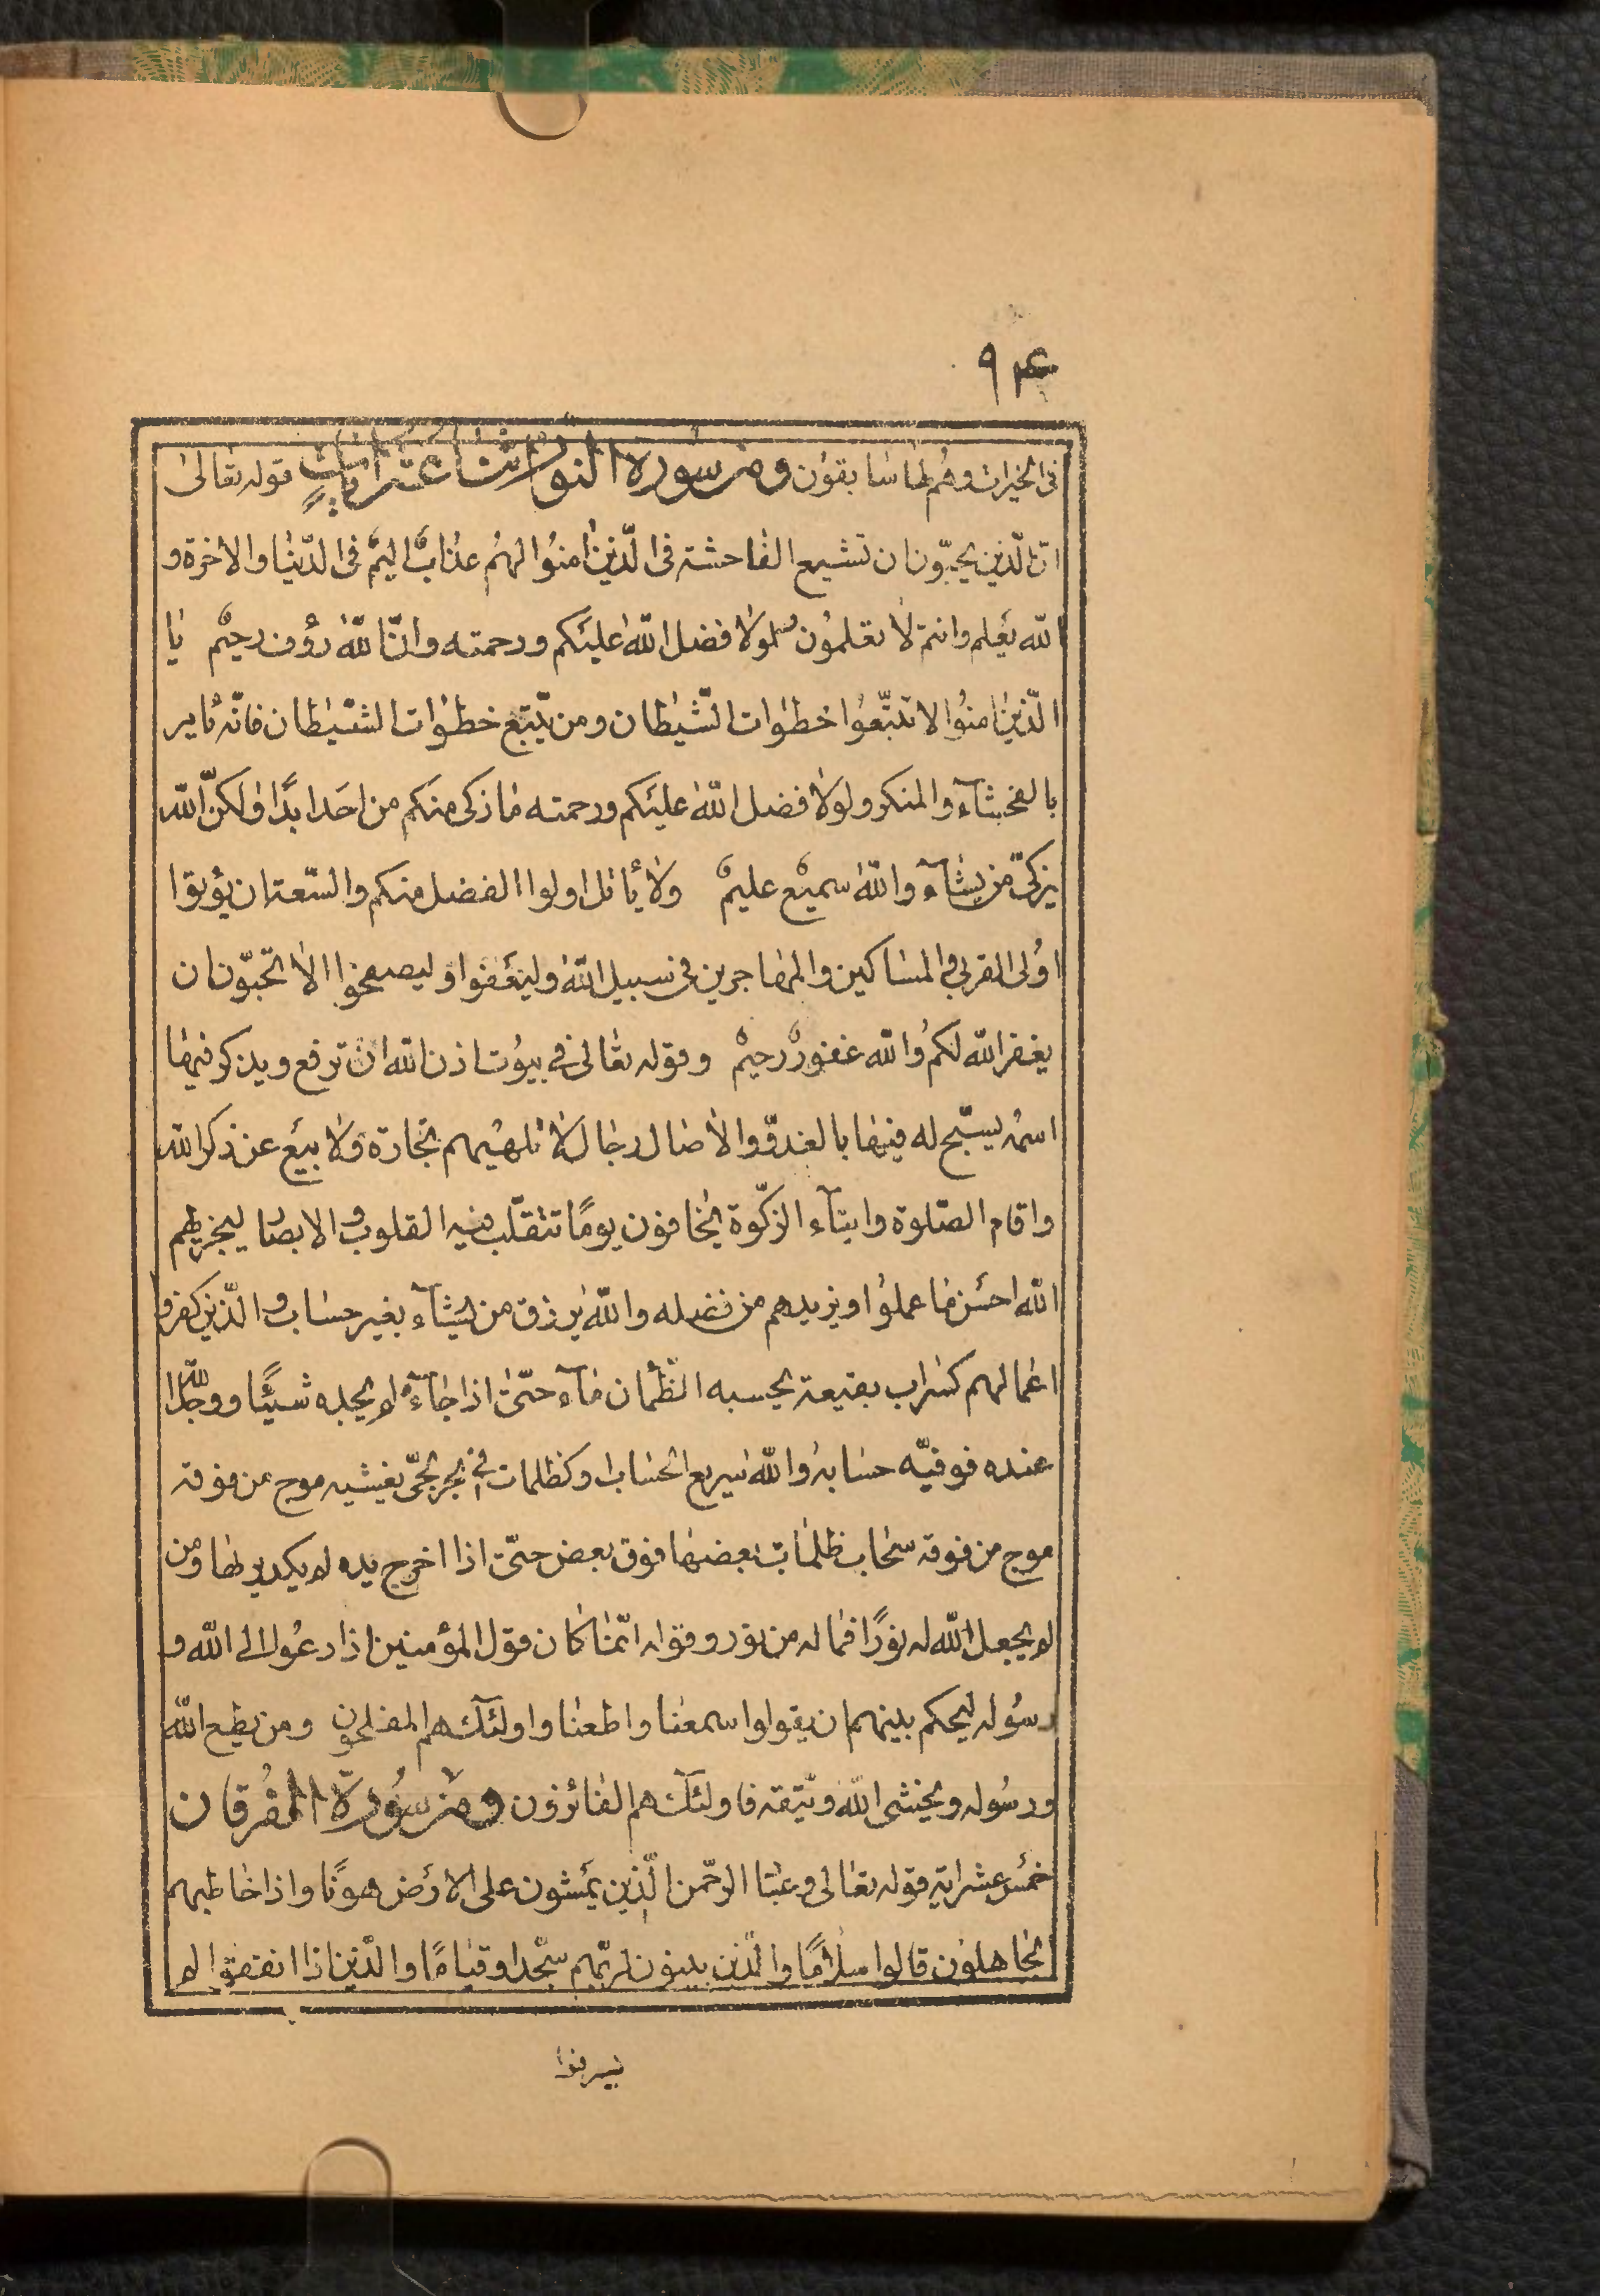 ۹۴
فی الخیرات و هُم لها سٰابقون ومن سُورة النّور اثنتا عشر ایاتٍ قوله تعٰالیٰ
انّ الّذین یحبّون ان تشیع الفٰاحشة فی الّذین اٰمنوُا لهُم عذابٌ الیمٌ فی الدّنیٰا والاخرة و
الله یَعلم وانتم لا تعلموُن ولولا فضل اللّٰه علیَکم ورحمته وانّ اللّٰه رؤف رحیمٌ یٰا
الّذین اٰمنوُا لا تتّبعوُا خطوٰات الشّیطان ومن یتّبع خطوٰات الشّیٰطان فانّه یٰامر
بالفحشآء والمنکر ولولا فضل اللّٰه علیَکم ورحمته مٰا زکی منکم من احَد ابدًا ولکنّ اللّٰه
یزکّی من یشٰآء واللّٰه سمیعٌ علیمٌ ولا یأتل اولوا الفضل منکم والسّعة ان یؤتوا
اوُلی القربی والمسٰاکین والمهٰاجرین فی سبیل اللّٰه ولیَعفوا ولیصفحوا الا تحبّون ان
یغفر اللّٰه لکم واللّٰه غفورٌ رحیمٌ وقوله تعٰالی فی بیوُت اذن اللّٰه ان ترفع ویذکر فیهٰا
اسمُه یسبّح له فیهٰا بالغدوّ والاٰصٰال رجٰال لا تلهیهم تجٰارة ولا بیَع عن ذکر اللّٰه
واقام الصّلوة وایتآء الزّکوة یخٰافون یومًا تتقلّب فیه القلوب والابصٰار لیجزیهم
اللّٰه احسَن مٰا عملوُا ویزیدهم من فضله واللّٰه یرزق من یشٰآء بغیر حسٰاب والّذین کفروا
اعمٰالهم کسَراب بقیعة یحسبه الظّمأن مٰآء حتّیٰ اذا جٰآءه لم یجده شیئًا ووجد اللّٰه
عنده فوفیّه حسٰابه واللّٰه سَریع الحسٰاب او کظلمات فی بحر لجّی یغشیه موج من فوقه
موج من فوقه سحٰاب ظلمٰات بعضهٰا فوق بعض حتّیٰ اذا اخرج یده لم یکد یریٰها ومن
لم یجعل اللّٰه له نورًا فمٰا له من نور وقوله انّمٰا کٰان قول المؤمنین اذا دعُوا الی اللّٰه و
رسُوله لیحکم بینهم ان یقولوا سمعنٰا واطعنٰا واولئک هم المفلحون ومن یطع اللّٰه
ورسُوله ویخشی اللّٰه ویتّقه فاولئک هم الفٰائزون ومن سُورة الفُرقان
خمسَ عشر ایة قوله تعٰالی وعبٰاد الرّحمن الّذین یمَشون علی الارَض هونًا واذا خٰاطبهم
الجٰاهلون قالوا سلٰامًا والّذین یبیتون لربّهم سجّدا وقیٰامًا والّذین اذا انفقوا لم
یسرفوا